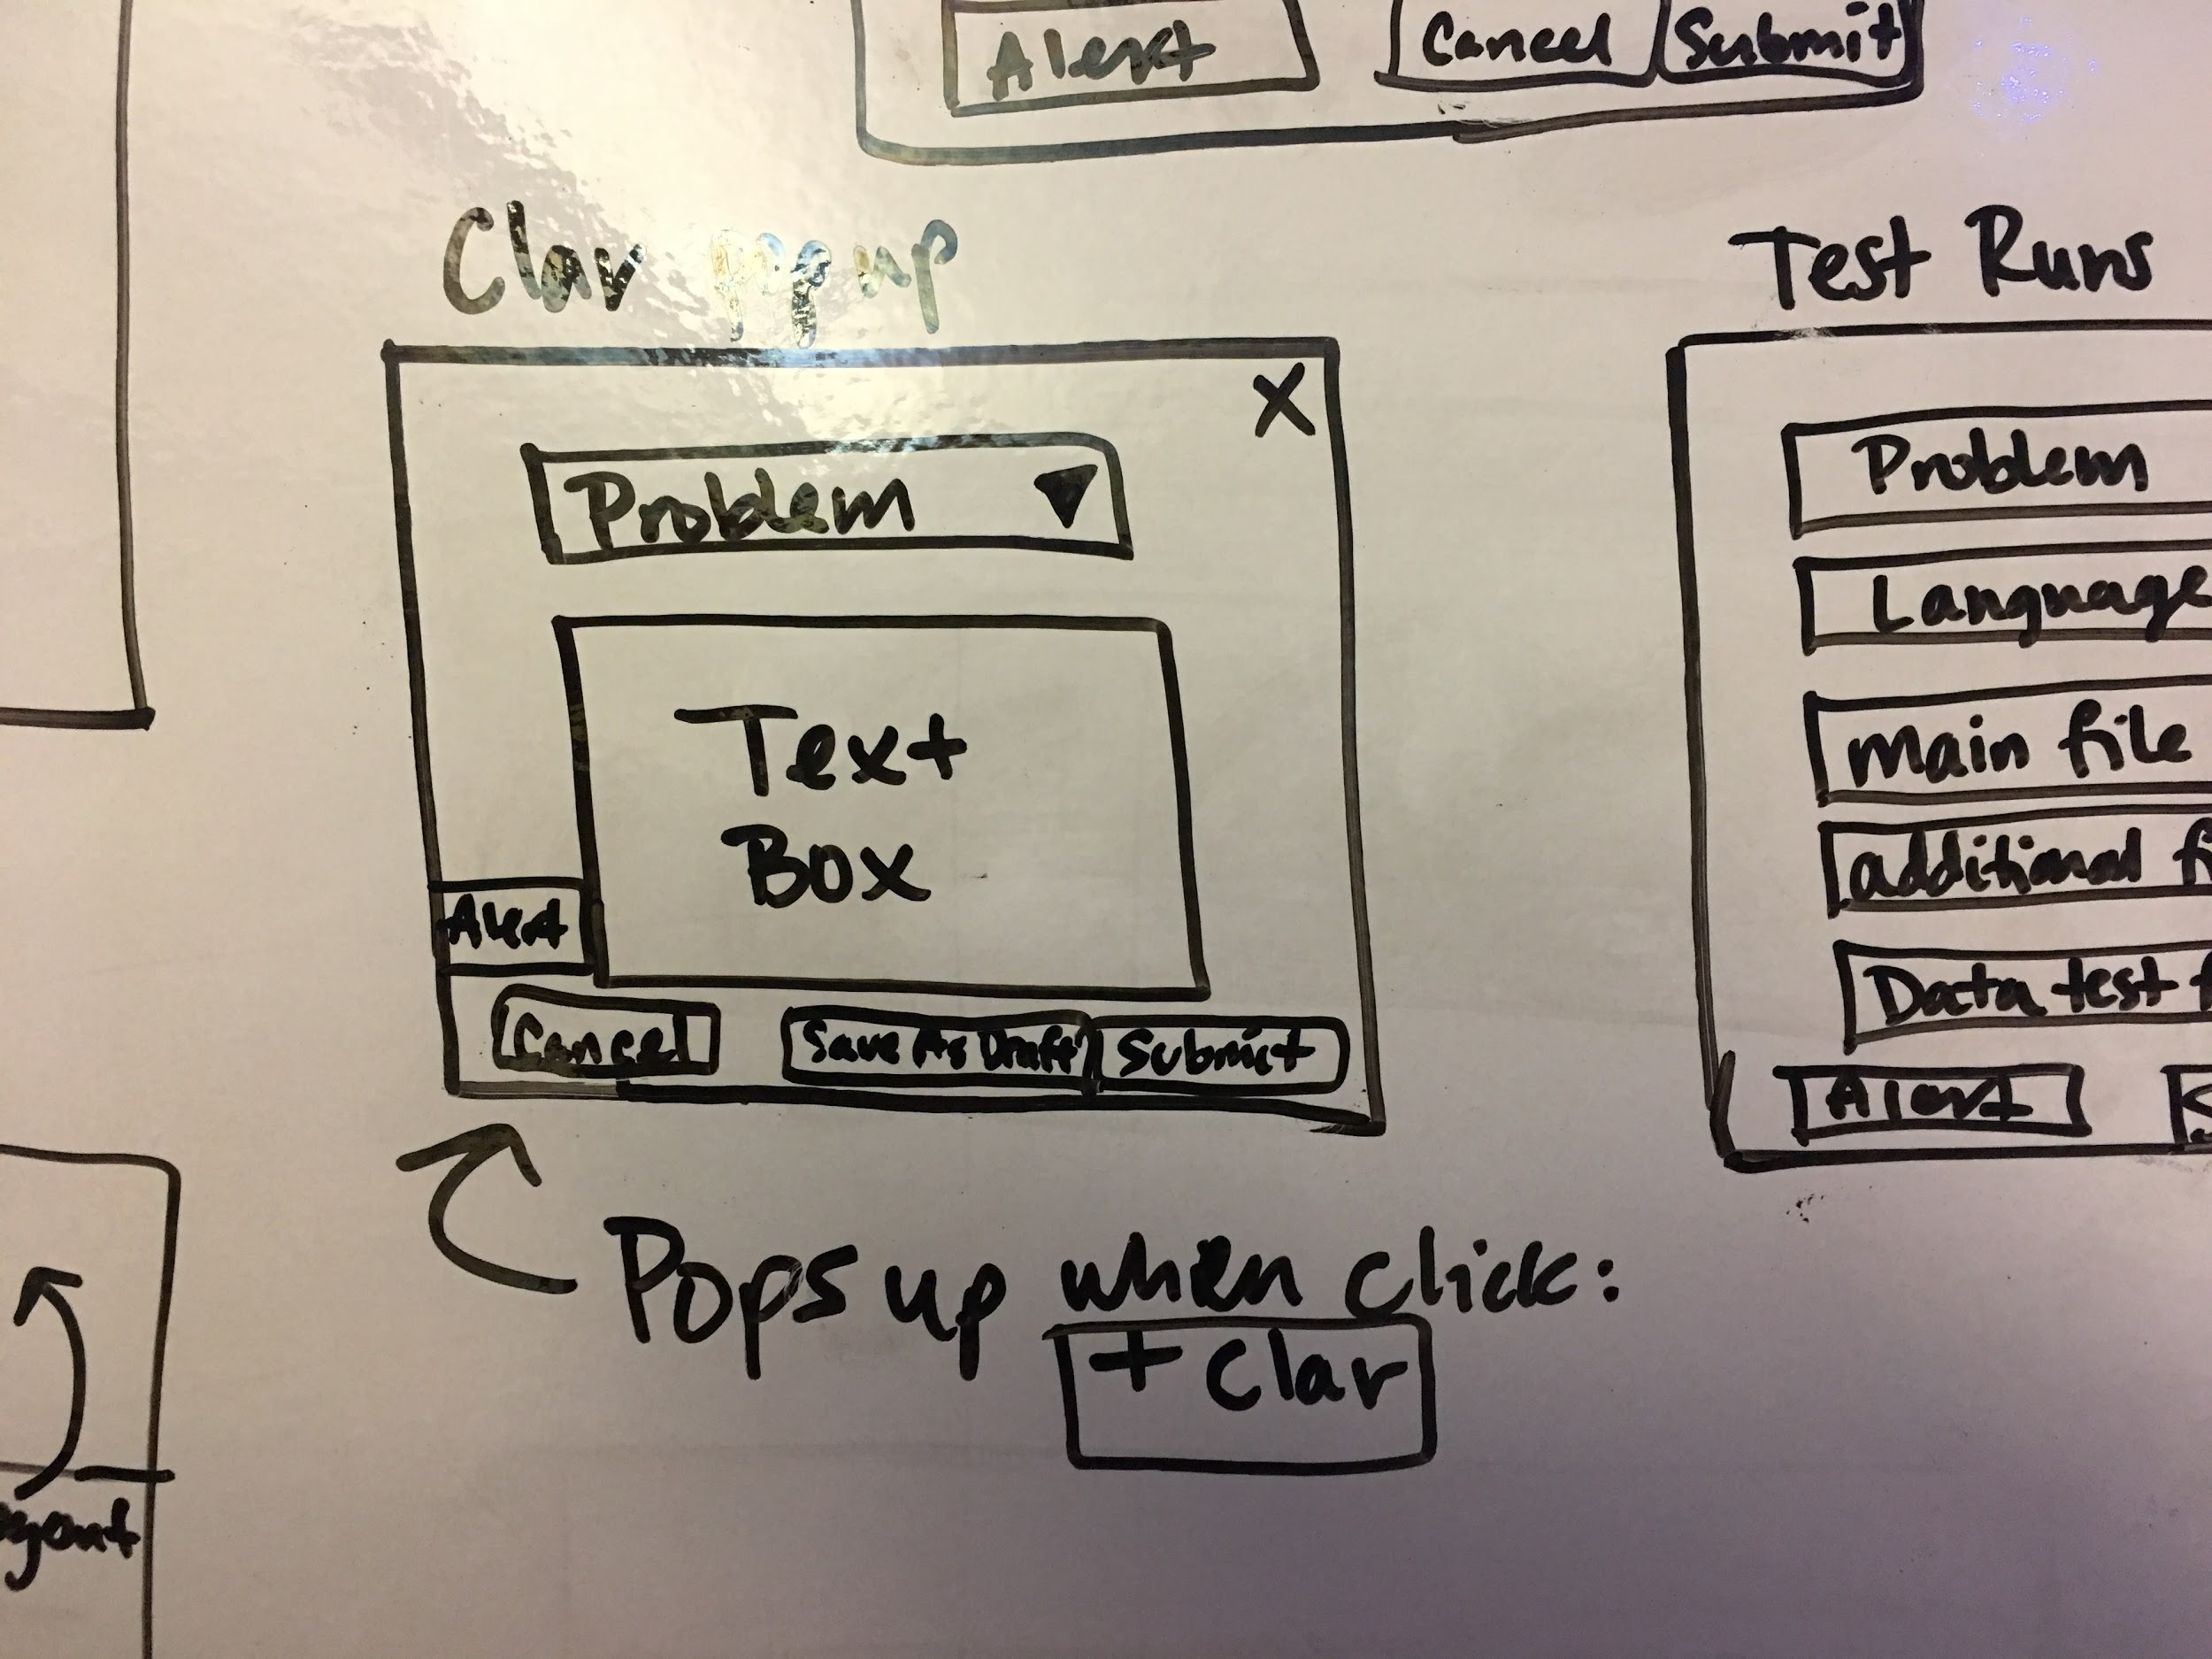 Alert
Cancel
Submit
Clar popup
X
Problem
Text
Box
Alert
Cancel
Save As Draft
Submit
Pops up when click:
+ Clar
Test Runs
Problem
Language
Main file
additional fi
Data test f
Alert